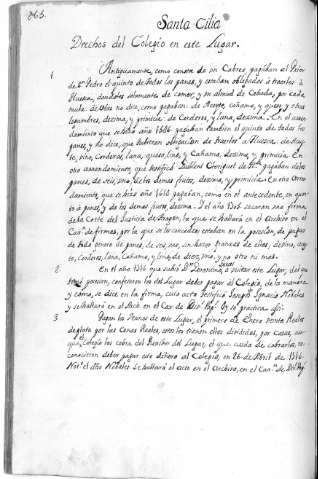 865.
Santa Cilia
Drechos del Colegio en este Lugar.
1 Antiguamente, como consta de un Cabreo, pagaban al Prior
de Sn Pedro el quinto de todos los panes, y estaban obligados à traerlos à
Huesca, dandoles solamente de comer, y un almud de Cebada, por cada
de Otros no dice, como pagaban de Aceyte, cañamo, y queso, y otras
legumbres, dezima, y primicia de Corderos, y lana, dezima. En el arren-
damiento que se hizo año 1606 pagaban tambien el quinto de todos los
panes, y no dice, que hubiesen obligacion de traerlos à Huesca de Azey-
te, vino, Corderos, lana, queso, lino, y Cañamo, dezima, y primicia. En
otro arrendamiento que testificó pagaban de los
panes, de seis, uno, de los demas frutos, dezima, y primicia. En otro arren-
damiento, que se hizo año 1640 pagaban, como en el antecedente, en quan-
to à panes, y de los demas frutos, dezima. I el año 1706 sacaron una firma
de la Corte del Justicia de Aragon, la que se hallará en el Archivo en el
Can. de firmas, por la que se les conceden estaban en la posesion, de pagar
de todo genero de panes, de seis, uno, sin hazer francas de ellas, dezima, azey-
te, Corderos, lana, Cañamo, y lino, de diez, uno, y no otra cosa.
2 En el año 1716 que subió Dn à visitar este Lugar, del qu
tomó posesion, confesaron los del Lugar deber pagar al Colegio, de la manera
y como, se dice en la firma, cuio acto testificó Ignacio Nabales
y se hallará en el Arch. en el Car. de y se practica assi.
3 Pagan los Jurados de este Lugar, el primero de Enero veinte Reales
de plata por las Cenas Reales, estos los tienen ellos divididos, por casas, aun
que el Colegio los cobra del Concejo del Lugar, el que cuida de cobrarlos, re-
conocieron deber pagar este dinero al Colegio, en 26 de Abril de 1716.
Not.º el dho Nabales se hallará el acto en el Archivo, en el Can.º de